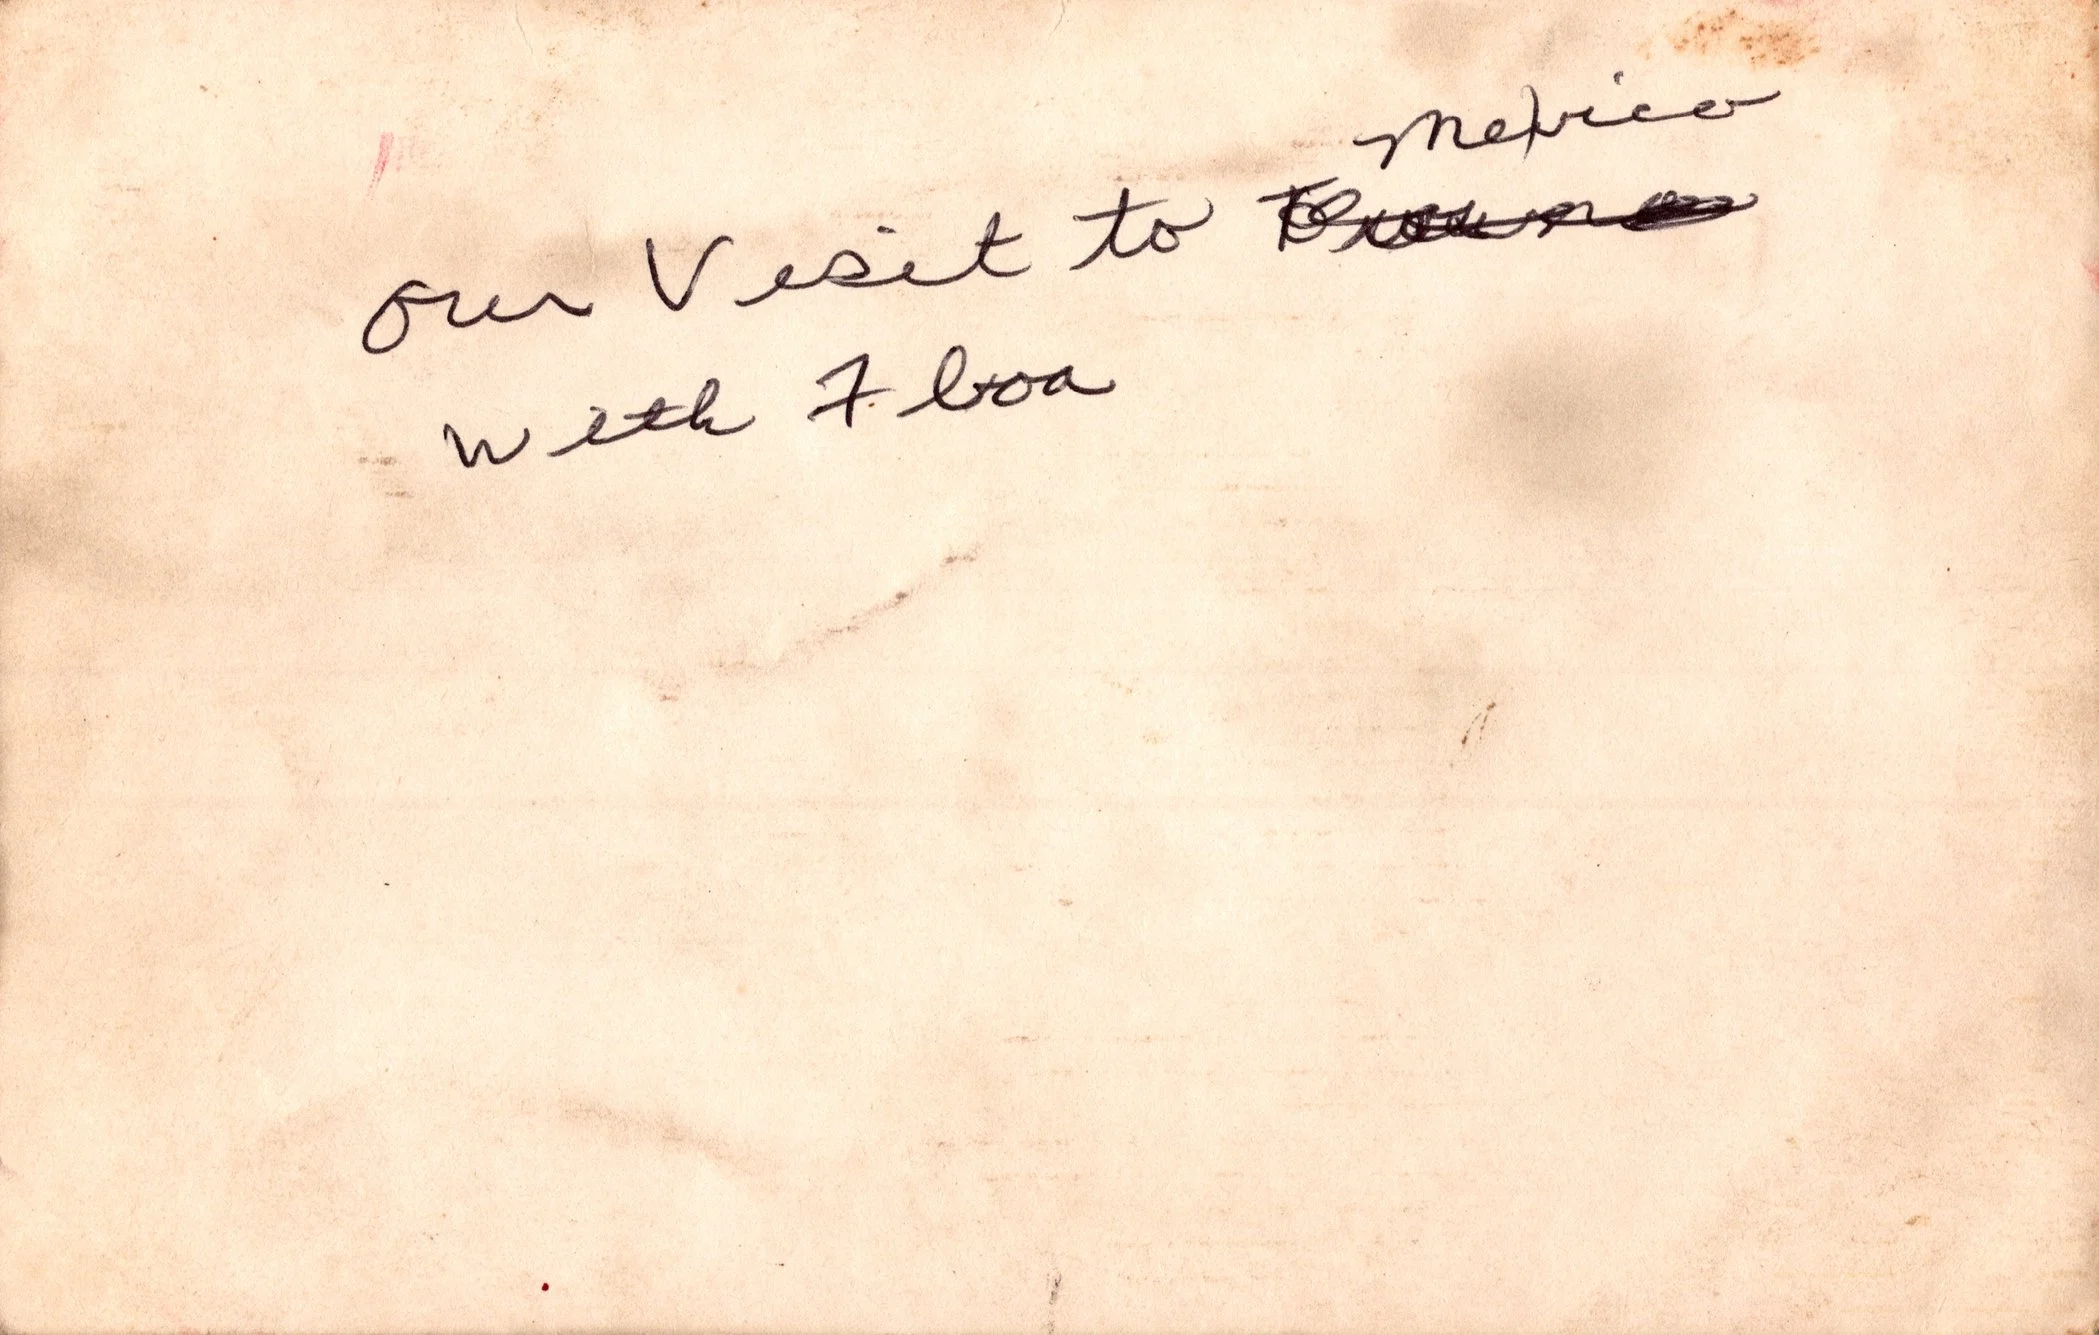 Mexico
our Visit to
with Floa